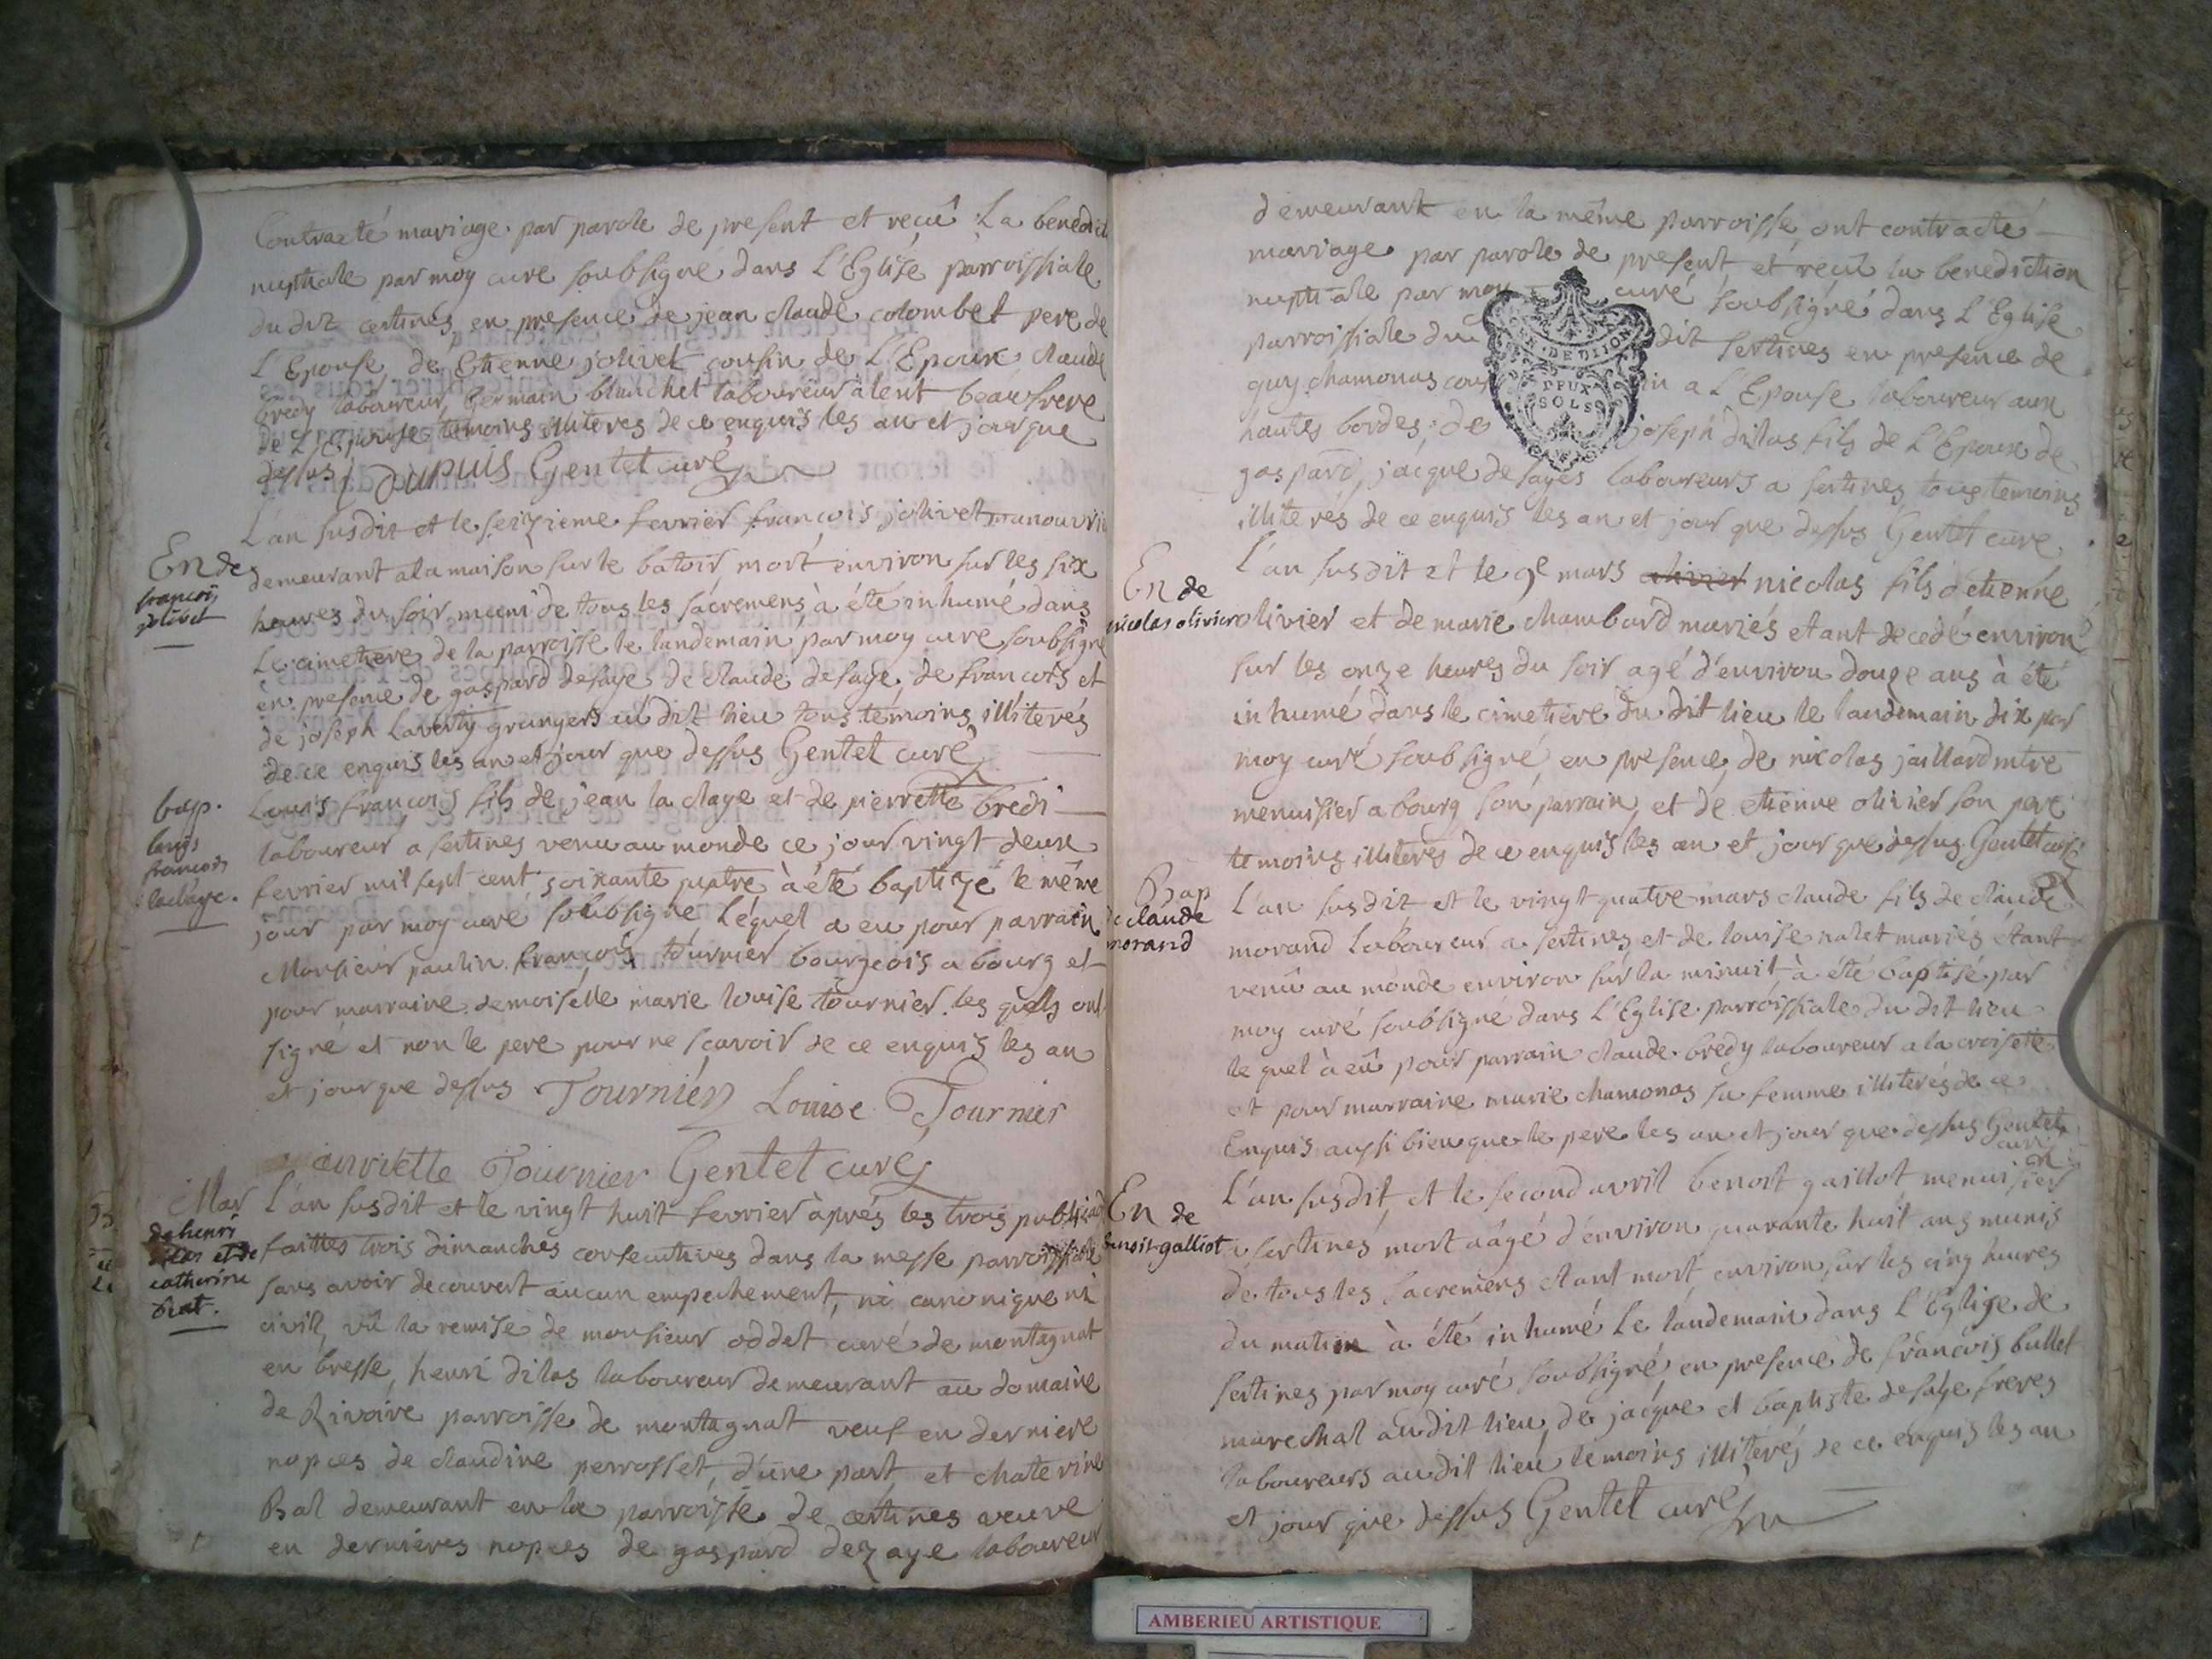 Contracté mariage par parole de present et reçû La benedict
nuptiale par moy curé soubsigné dans L'Eglise parroissiale
du dit certines en presence de jean claude colombet pere de
L'Epouse de Etienne jolivet cousin de L'Epoux claude
bredy laboureur, Germain blanchet laboureur alent beaufrere
de L'Epouse temoins illiterés de ce enquis les an et jour que
dessus Dupuis Gentet curé
En de
francois
jolivet
L'an susdit et le seizieme fevrier francois jolivet manouvrie
demeurant a la maison sur le batoir, mort environ sur les six
heures du soir muni de tous les sacremens à été inhumé dans
Le cimetiere de la parroisse le landemain par moy curé soubsigné
en presence de gaspard desaye de claude desaye, de francois et
de joseph Laverty grangers au dit lieu tous temoins illiterés
de ce enquis les an et jour que dessus Gentet curé
bap.
louis
francois
laclaye.
Louis francois fils de jean la claye et de pierrette bredi
laboureur a sertines venu au monde ce jour vingt deux
fevrier mil sept cent soixante quatre à été baptizé le même
jour par moy curé soubsigné Léquel a eu pour parrain
Monsieur paulin francois tournier bourgeois a bourg et
pour marraine demoiselle marie louise tournier les quels ont
signé et non le pere pour ne scavoir de ce enquis les an
et jour que dessus Tournier Louise Tournier
Tournier Gentet curé
Mar
de henri
dilas et de
catherine
bat.
L'an susdit et le vingt huit fevrier àprés les trois publicao
faittes trois dimanches consecutives dans la messe parroissiale
sans avoir decouvert aucun empechement, ni canonique ni
civil, vû la remise de monsieur oddet curé de montagnat
en bresse, henri dilas laboureur demeurant au domaine
de Rivoire parroisse de montagnat veuf en derniere
nopces de claudine perrosset, d'une part, et chaterine
Bal demeurant en la parroisse de certines veuve
en dernieres nopces de gaspard dezaye laboureur
demeurant en la même parroisse, ont contracté
marriage par parole de present et reçû la benediction
nuptiale par moy curé soubsigné dans L'Eglise
parroissiale du dit sertines en presence de
guy chamonas cousin a L'Epouse laboureur aux
hautes bordes, de joseph dilas fils de L'Epoux de
gaspard, jacque desayes laboureurs a sertines tous temoins
illiterés de ce enquis les an et jour que dessus Gentet curé
DE DIJON
DEUX
SOLS
En de
nicolas olivier
L'an susdit et le 9e mars olivier nicolas fils d'etienne
olivier et de marie chambard mariés etant decedé environ
sur les onze heures du soir agé d'environ douze ans à été
inhumé dans le cimetiere du dit lieu le landemain dix par
moy curé soubsigné en presence, de nicolas jaillard mtre
menuisier a bourg son parrain, et de etienne olivier son pere
temoins illiterés de ce enquis les an et jour que dessus Gentet curé
Bap
de claude
morand
L'an susdit et le vingt quatre mars claude fils de claude
morand laboureur a sertines et de louise nalet mariés étant
venû au monde environ sur la minuit à été baptisé par
moy curé soubsigné dans L'Eglise parroissiale du dit lieu
le quel à eû pour parrain claude bredy laboureur a la croisette
et pour marraine marie chamonas sa femme illiterés de ce
Enquis aussi bien que le pere les an et jour que dessus Gentet
curé
En de
benoit galliot
L'an susdit, et le second avril benoit gaillot menuisier
a sertines mort aâgé d'environ quarante huit ans munis
de tous les sacremens etant mort environ sur les cinq heures
du matin à été inhumé Le landemain dans L'Eglise de
sertines par moy curé soubsigné en presence de francois bullet
marechal audit lieu, de jacque et baptiste desaye freres
laboureurs au dit lieu temoins illiterés de ce enquis les an
et jour que dessus Gentet curé
AMBERIEU ARTISTIQUE